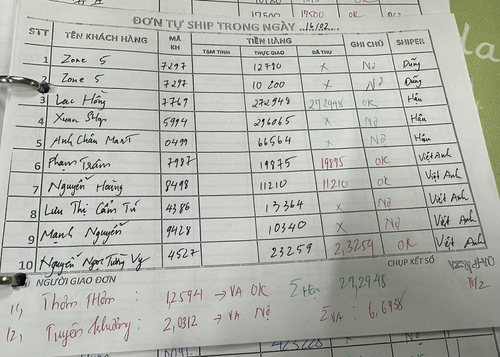 17500 17500 OK
ĐƠN TỰ SHIP TRONG NGÀY 16/12
STT TÊN KHÁCH HÀNG MÃ KH TIỀN HÀNG GHI CHÚ SHIPER
TẠM TÍNH THỰC GIAO ĐÃ THU
1 Zone 5 7297 12790 x Nợ Dũng
2 Zone 5 7297 10200 x Nợ Dũng
3 Lạc Hồng 7769 272948 272948 OK Hậu
4 Xuân Ship 5994 296065 x Nợ Hậu
5 Anh Châu Mart 0499 66564 x Nợ Hậu
6 Phạm Trâm 7987 19875 19875 OK Việt Anh
7 Nguyễn Hoàng 8498 11210 11210 OK Việt Anh
8 Lưu Thị Cẩm Tú 4386 13364 x Nợ Việt Anh
9 Mạnh Nguyễn 9428 10340 x Nợ Việt Anh
10 Nguyễn Ngọc Tường Vy 4527 23259 2,3259 OK Việt Anh
NGƯỜI GIAO ĐƠN CHỤP KẾT SỔ
11, Thôm Thôm : 1,2594 → VA OK Σ Hậu 27,2948
12, Truyền Khương : 2,0312 → VA Nợ Σ VA : 6,6958